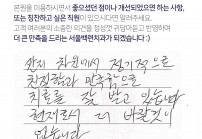 본원을 이용하시면서 좋으셨던 점이나 개선되었으면 하는 사항,
또는 칭찬하고 싶은 직원이 있으시다면 알려주세요.
고객 여러분의 소중한 의견을 정성껏 귀담아듣고 반영하여
더 큰 만족을 드리는 서울백병원치과가 되겠습니다 :)
정기적으로
치료를 잘 받고 있습니다
현재로서 더 바랄것이
없습니다